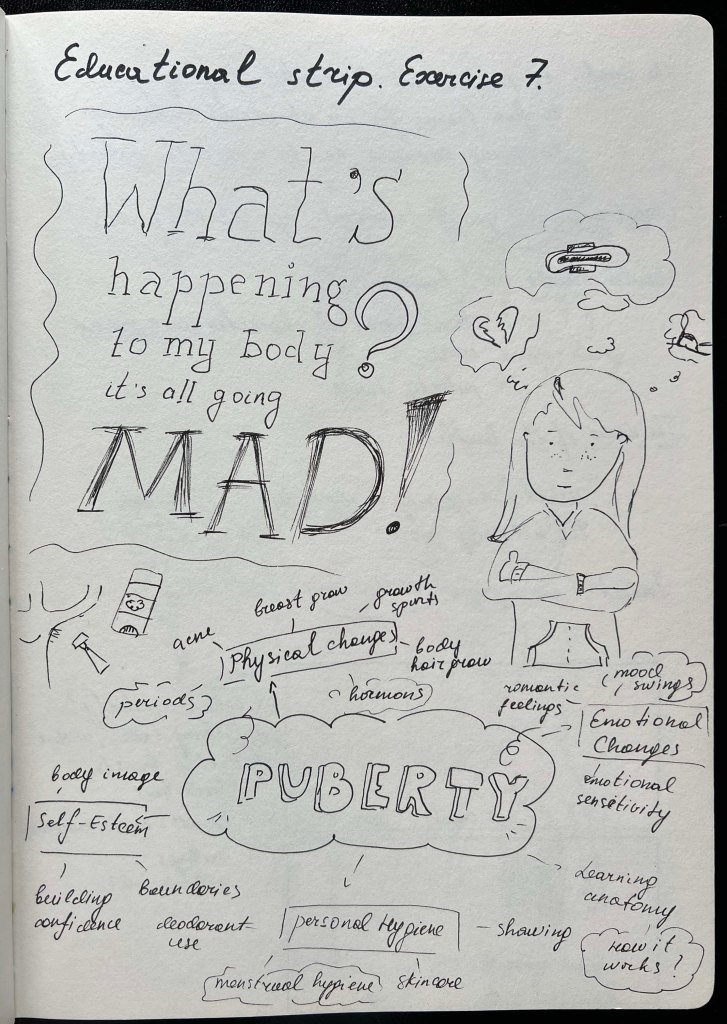 Educational strip. Exercise 7.
What's
happening
to my body?
it's all going
MAD!
breast grow
growth
spurts
acne
Physical changes
body
hair grow
periods
hormons
mood
swings
romantic
feelings
Emotional
Changes
emotional
sensitivity
PUBERTY
body image
Self-Esteem
building
confidence
boundaries
deodorant
use
personal Hygiene
showing
menstrual hygiene
skincare
Learning
anatomy
How it
works?